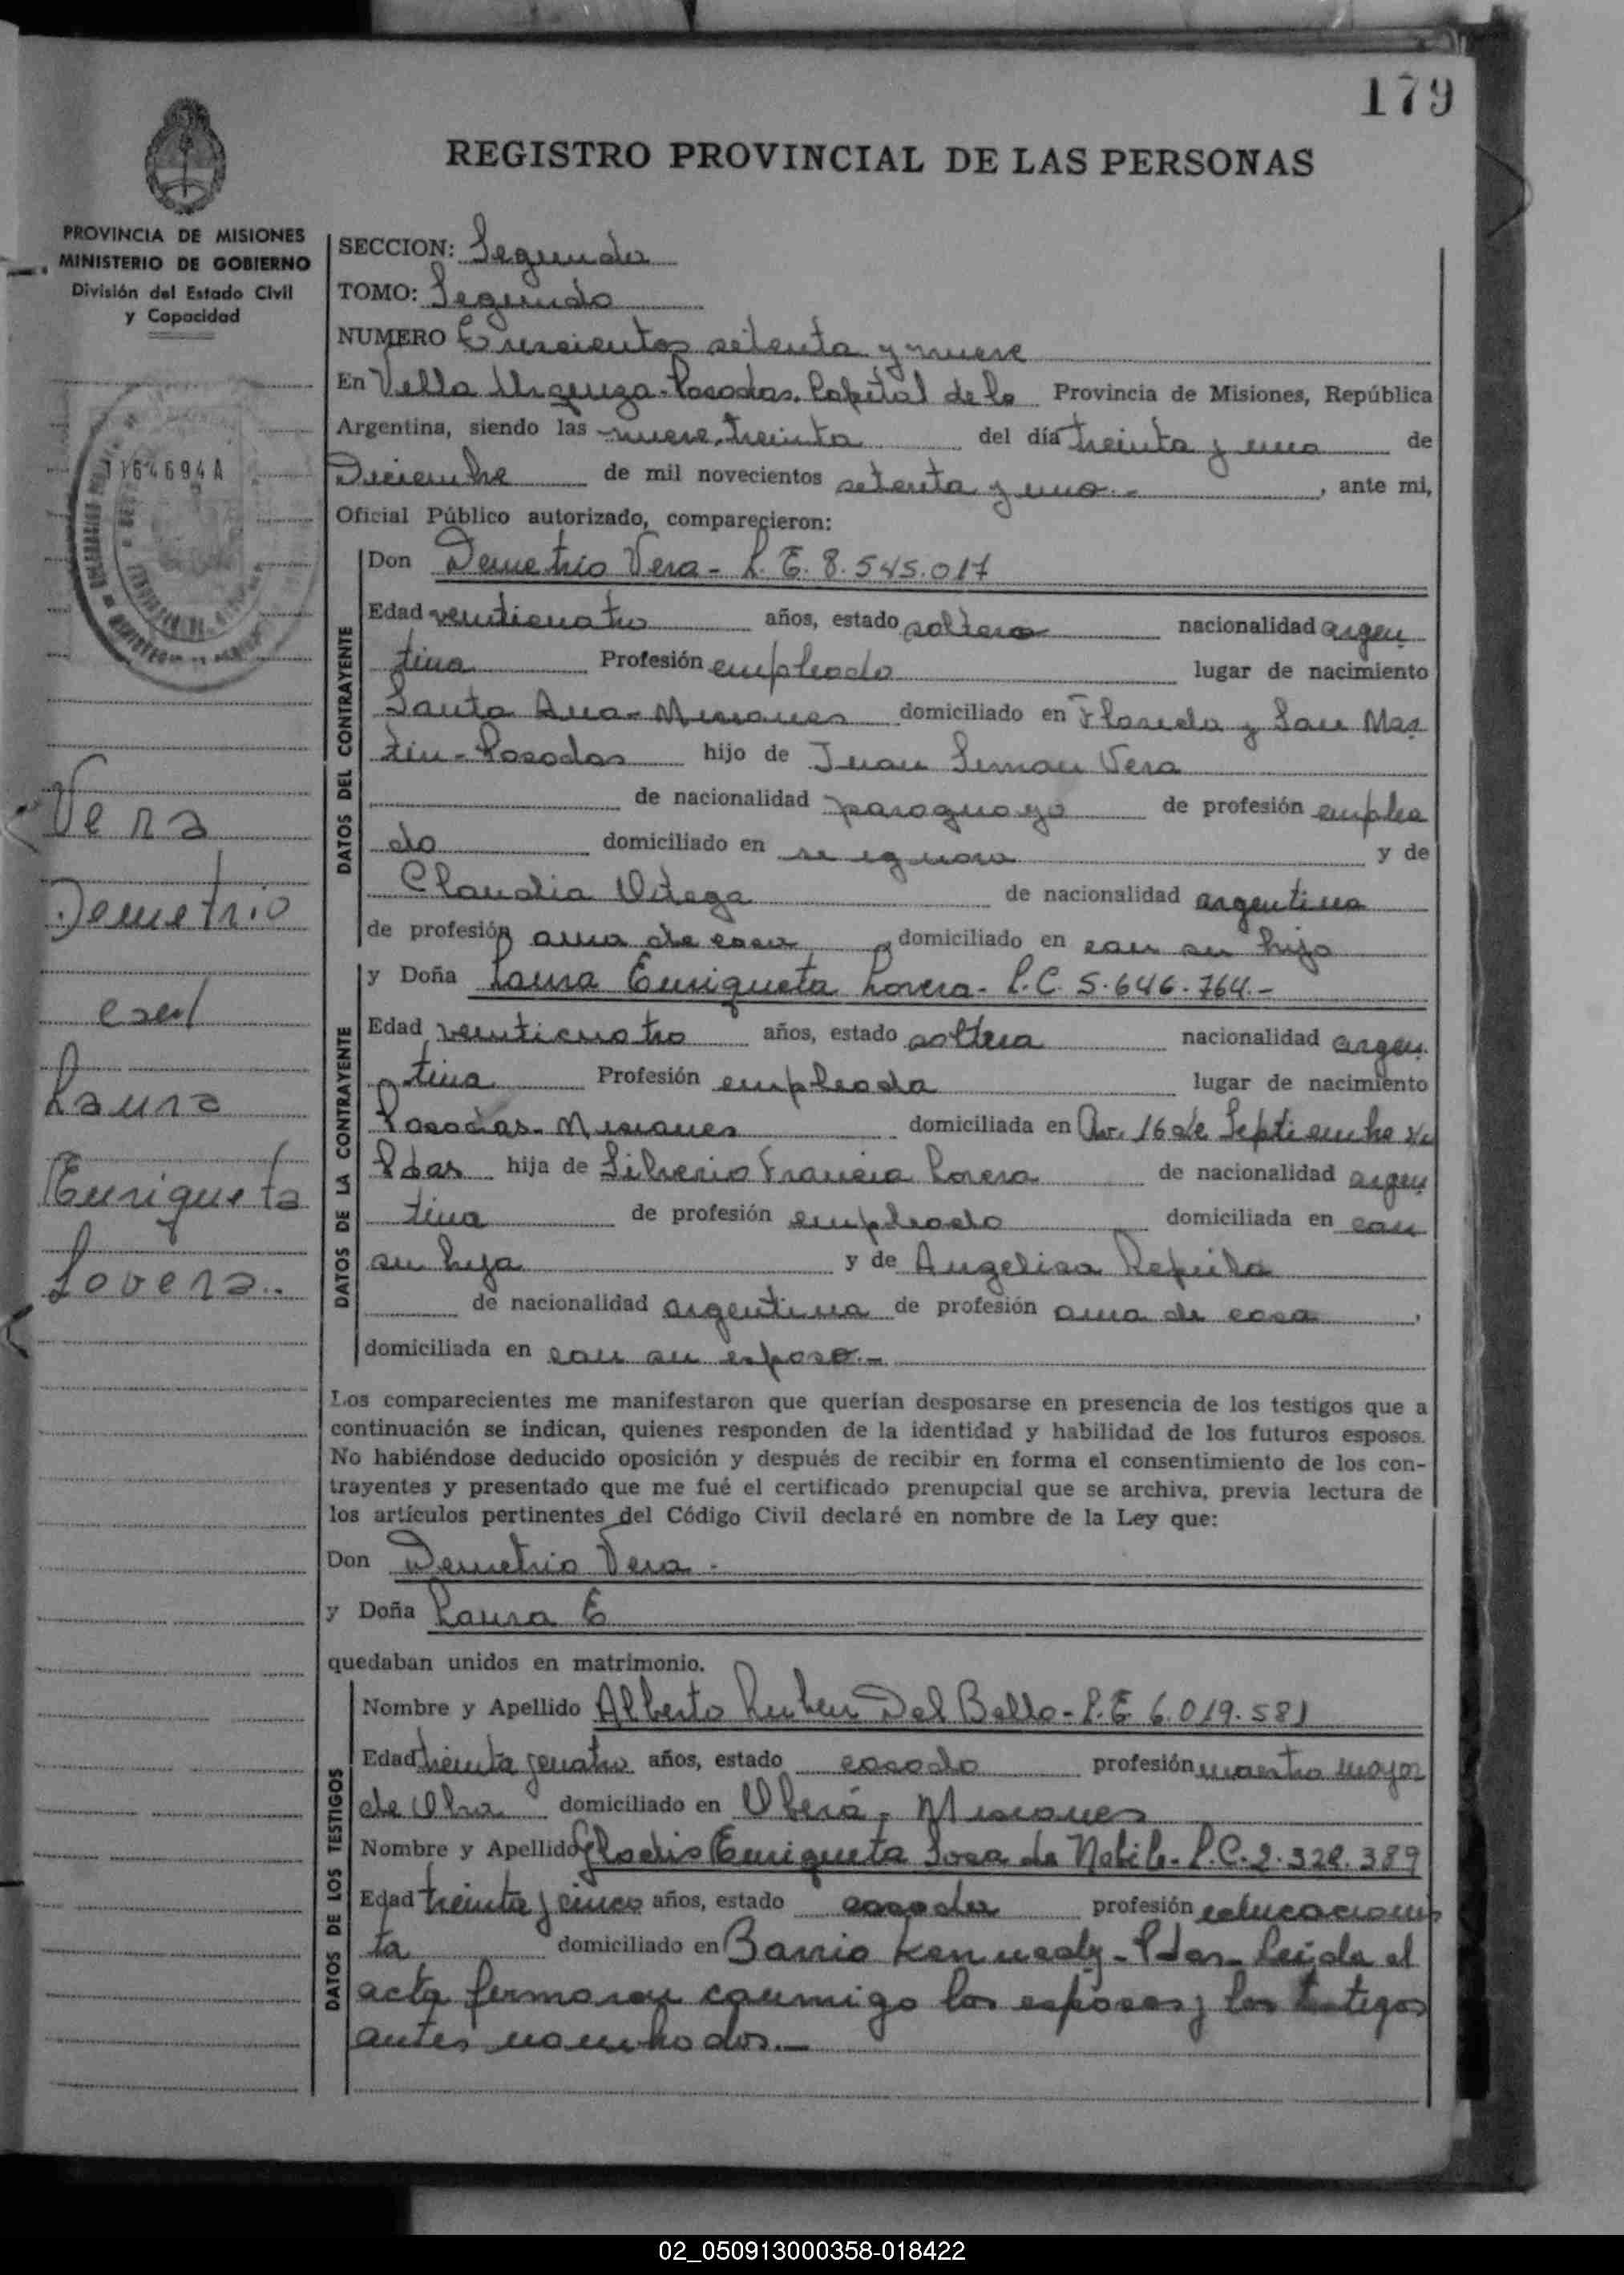 179
REGISTRO PROVINCIAL DE LAS PERSONAS
PROVINCIA DE MISIONES
MINISTERIO DE GOBIERNO
División del Estado Civil
y Capacidad
1164694A
Vera
Demetrio
con
Laura
Enriqueta
Lovera..
SECCION: Segunda
TOMO: Segundo
NUMERO Trescientos setenta y nueve
En Villa Urquiza-Posadas, Capital de la Provincia de Misiones, República
Argentina, siendo las nueve, treinta del día treinta y uno de
Diciembre de mil novecientos setenta y uno.- , ante mi,
Oficial Público autorizado, comparecieron:
DATOS DEL CONTRAYENTE
Don Demetrio Vera - L.E. 8.545.017
Edad veinticuatro años, estado soltero nacionalidad argen
tina Profesión empleado lugar de nacimiento
Santa Ana-Misiones domiciliado en Florida y San Mar
tin-Posadas hijo de Juan Vera
de nacionalidad paraguayo de profesión emplea
do domiciliado en se ignora y de
Claudia Ortega de nacionalidad argentina
de profesión ama de casa domiciliado en con su hijo
DATOS DE LA CONTRAYENTE
y Doña Laura Enriqueta Lovera- L.C. 5.646.764.-
Edad veinticuatro años, estado soltera nacionalidad argen
tina Profesión empleada lugar de nacimiento
Posadas-Misiones domiciliada en Av. 16 de Septiembre
Pdas hija de Silverio Francia Lovera de nacionalidad argen
tina de profesión empleado domiciliada en con
su hija y de Angelica
de nacionalidad argentina de profesión ama de casa ,
domiciliada en con su esposo.-
Los comparecientes me manifestaron que querían desposarse en presencia de los testigos que a
continuación se indican, quienes responden de la identidad y habilidad de los futuros esposos.
No habiéndose deducido oposición y después de recibir en forma el consentimiento de los con-
trayentes y presentado que me fué el certificado prenupcial que se archiva, previa lectura de
los artículos pertinentes del Código Civil declaré en nombre de la Ley que:
Don Demetrio Vera -
y Doña Laura E
quedaban unidos en matrimonio.
DATOS DE LOS TESTIGOS
Nombre y Apellido Alberto Ruben Del Bello- L.E 6.019.581
Edad treinta y cuatro años, estado casado profesión maestro mayor
de Obra domiciliado en Oberá, Misiones
Nombre y Apellido Gladis Enriqueta Sosa de L.C. 2.328.389
Edad treinta y cinco años, estado casada profesión educacionis
ta domiciliado en Barrio Kennedy-Pdas- Leida el
acta firmaron conmigo los esposos y los testigos
antes nombrados.-
02_050913000358-018422